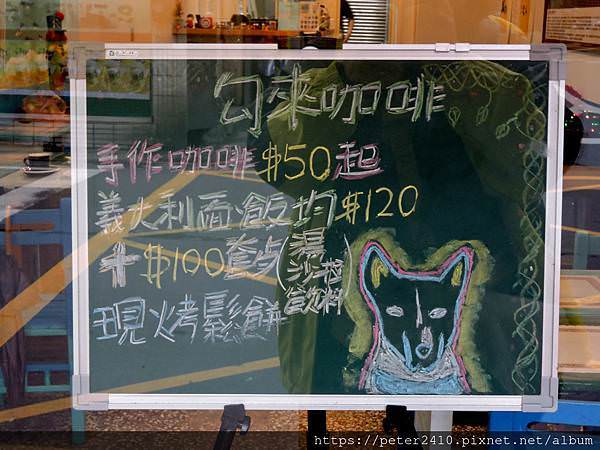 勾來咖啡
手作咖啡$50起
義大利面.飯均$120
+$100套餐(湯
沙拉
飲料)
現烤鬆餅
https://peter2410.pixnet.net/album